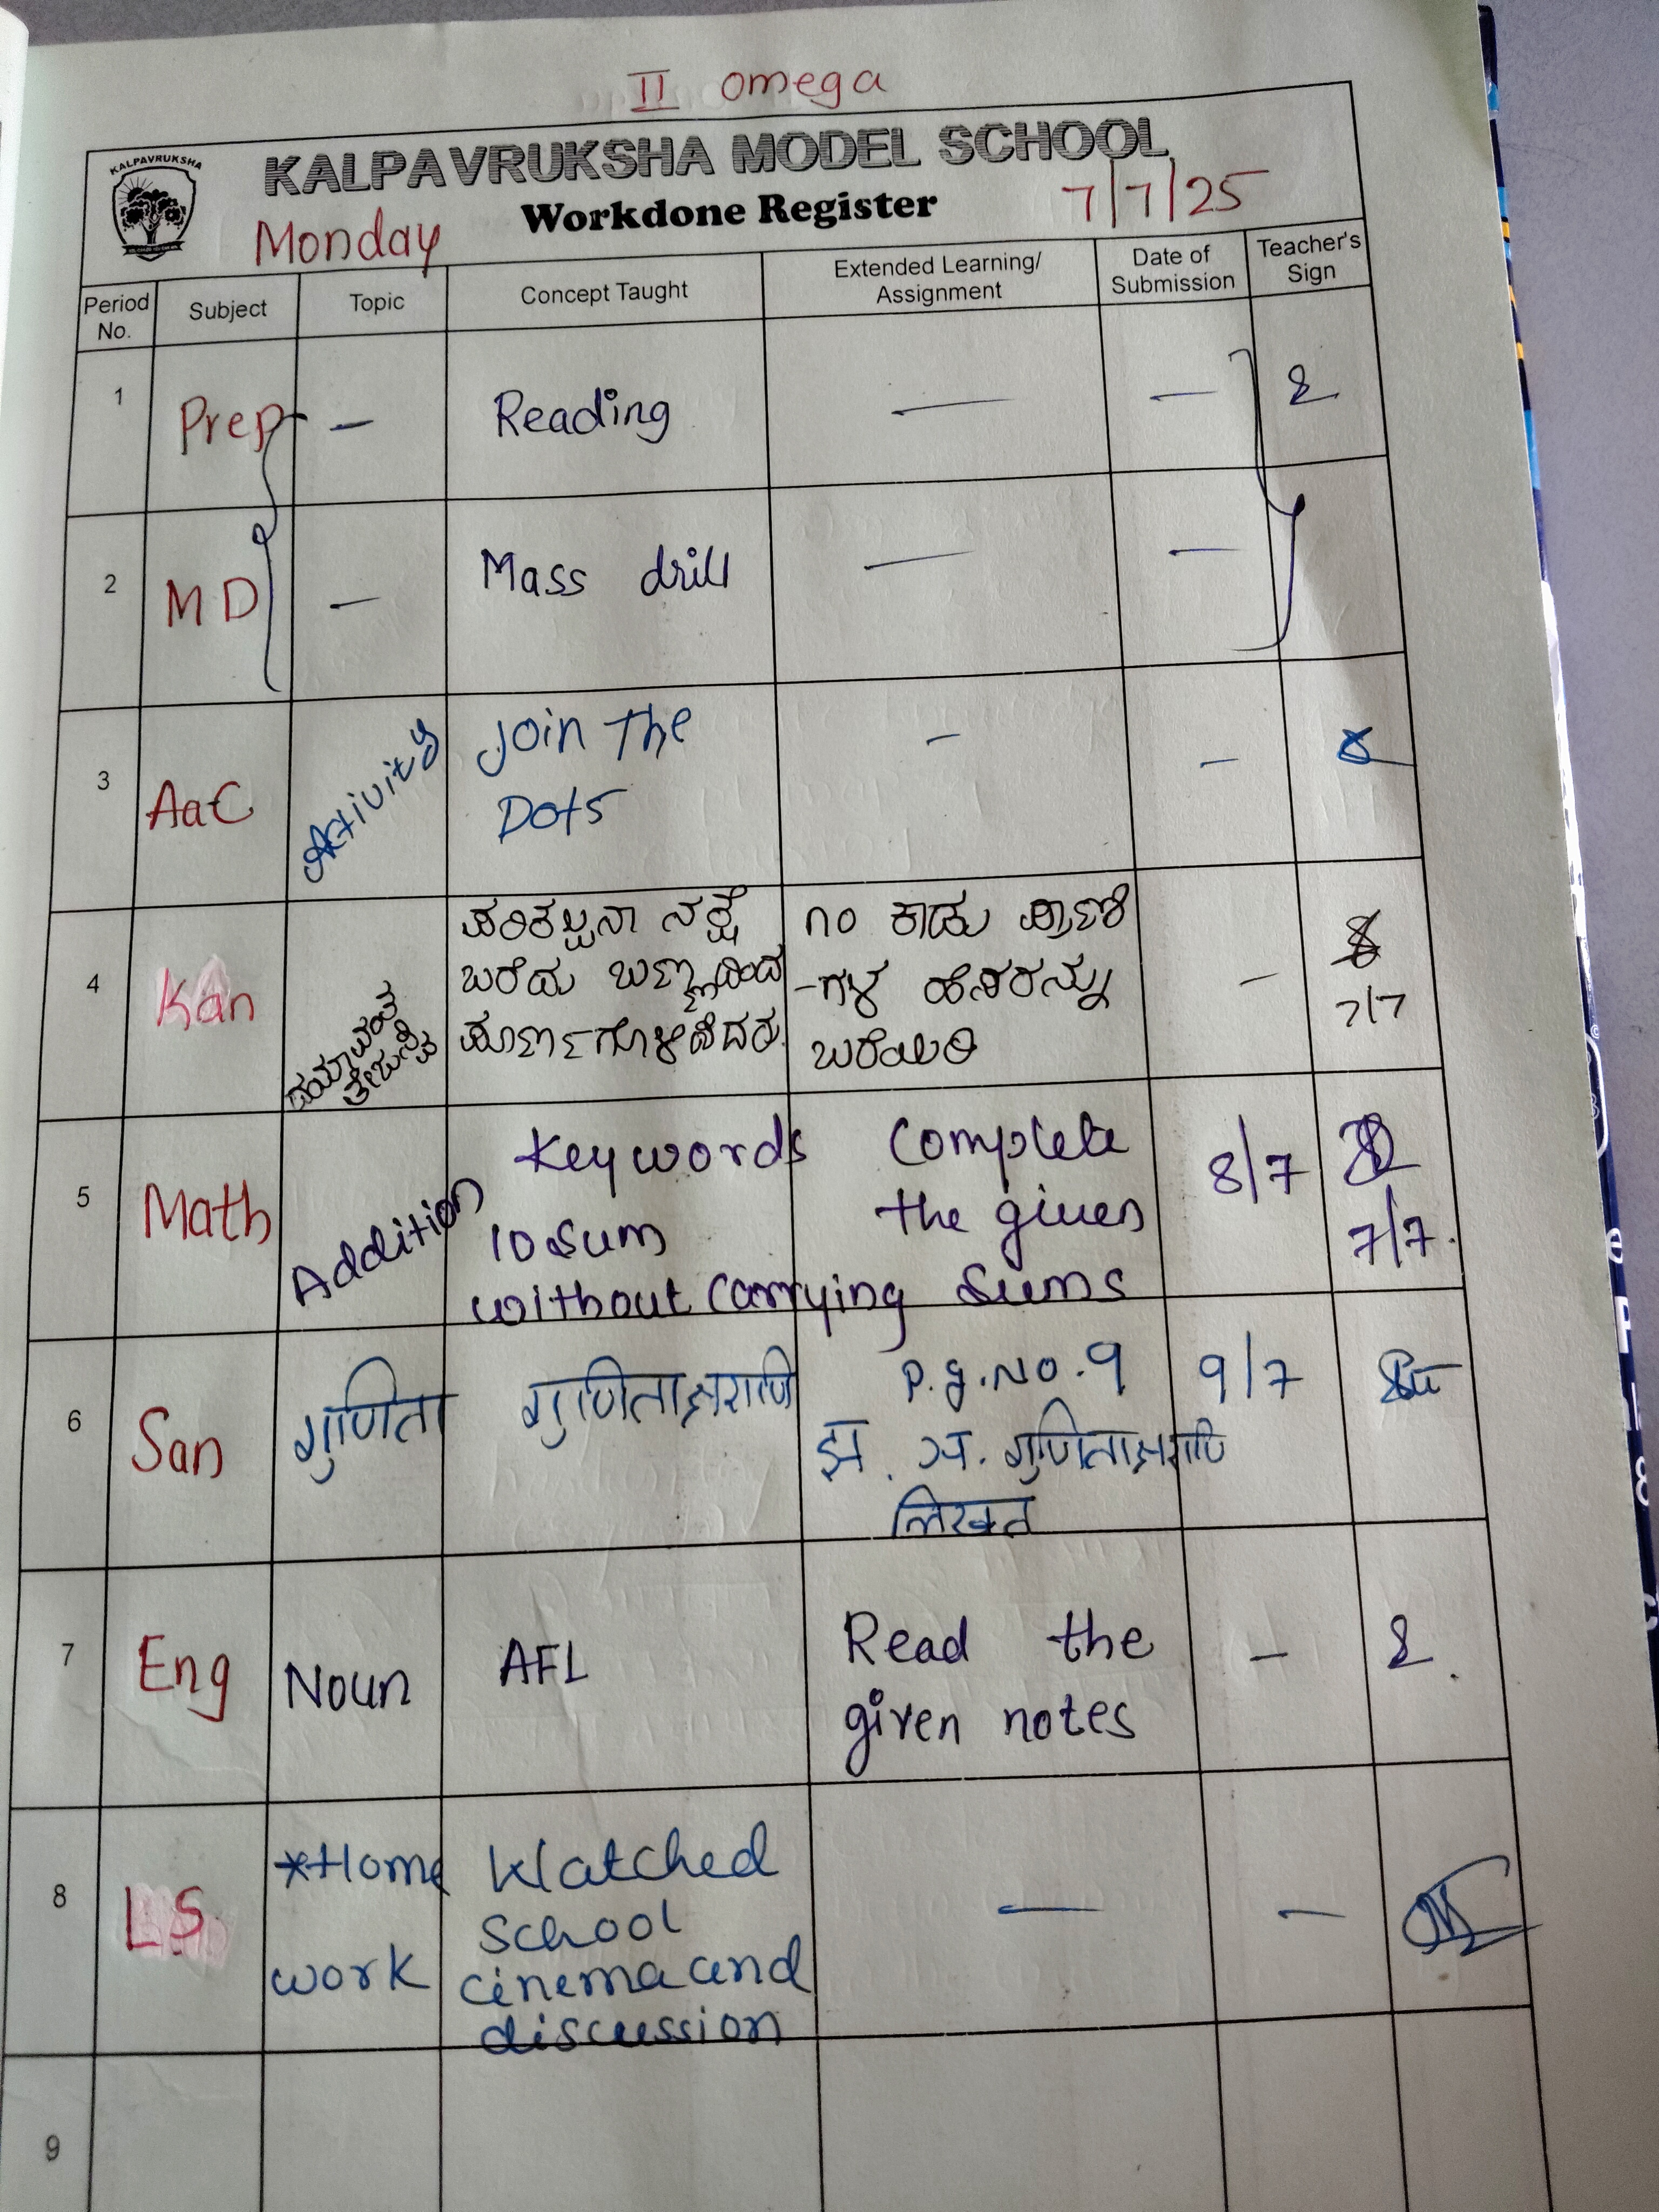 II omega
KALPAVRUKSHA
KALPAVRUKSHA MODEL SCHOOL
Monday Workdone Register 7/7/25
Period No. Subject Topic Concept Taught Extended Learning/ Assignment Date of Submission Teacher's Sign
1 Prep - Reading — —
2 MD - Mass drill — —
3 AaC Activity Join The - -
Dots
4 Kan ದಯಾವಂತ ಪರಿಕಲ್ಪನಾ ನಕ್ಷೆ ೧೦ ಕಾಡು ಪ್ರಾಣಿ -
ಬರೆದು ಬಣ್ಣದಿಂದ -ಗಳ ಹೆಸರನ್ನು 7/7
ಪೂರ್ಣಗೊಳಿಸಿದರು. ಬರೆಯಿರಿ
5 Math Addition Keywords Complete 8/7
10 sum the given 7/7.
without carrying sums
6 San गुणिता गुणिताक्षराणि P.g.No.9 9/7
झ. ञ. गुणिताक्षराणि
लिखत
7 Eng Noun AFL Read the -
given notes
8 LS *Home Watched — —
school
work cinema and
discussion
9